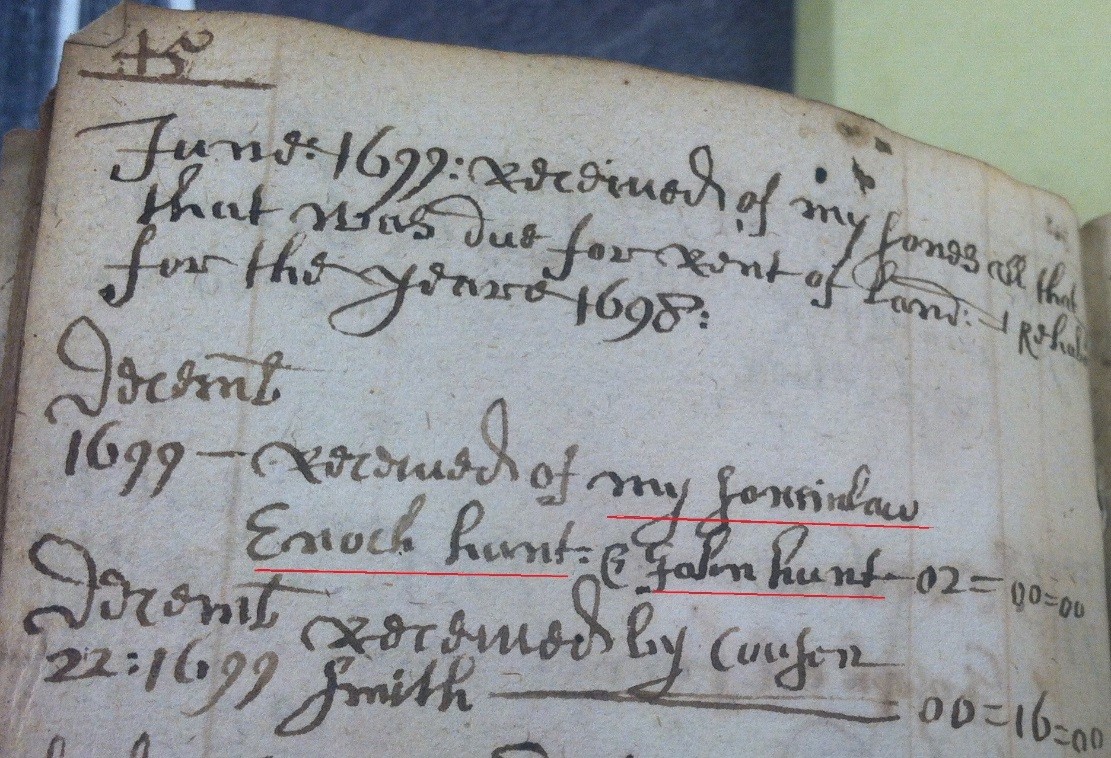 45
June: 1699: Received of my sones all that
that was due for Rent of Land: I Rehal
for the yeare 1698:
Decemb
1699 — Received of my soninlaw
Enoch hunt: & John hunt 02=00=00
Decemb
22:1699 Received by Cousen
Smith — 00=16=00